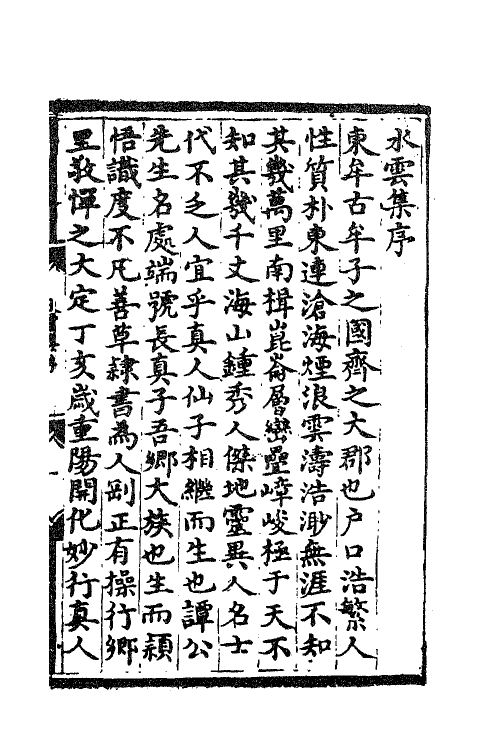 水雲集序
東牟古牟子之國齊之大郡也户口浩繁人
性質朴東連滄海煙浪雲濤浩渺無涯不知
其幾萬里南揖崑崙層巒疊嶂峻極于天不
知其幾千丈海山鍾秀人傑地靈異人名士
代不乏人宜乎真人仙子相繼而生也譚公
先生名處端號長真子吾鄉大族也生而穎
悟識度不凡善草隸書為人剛正有操行鄉
里敬憚之大定丁亥歲重陽開化妙行真人